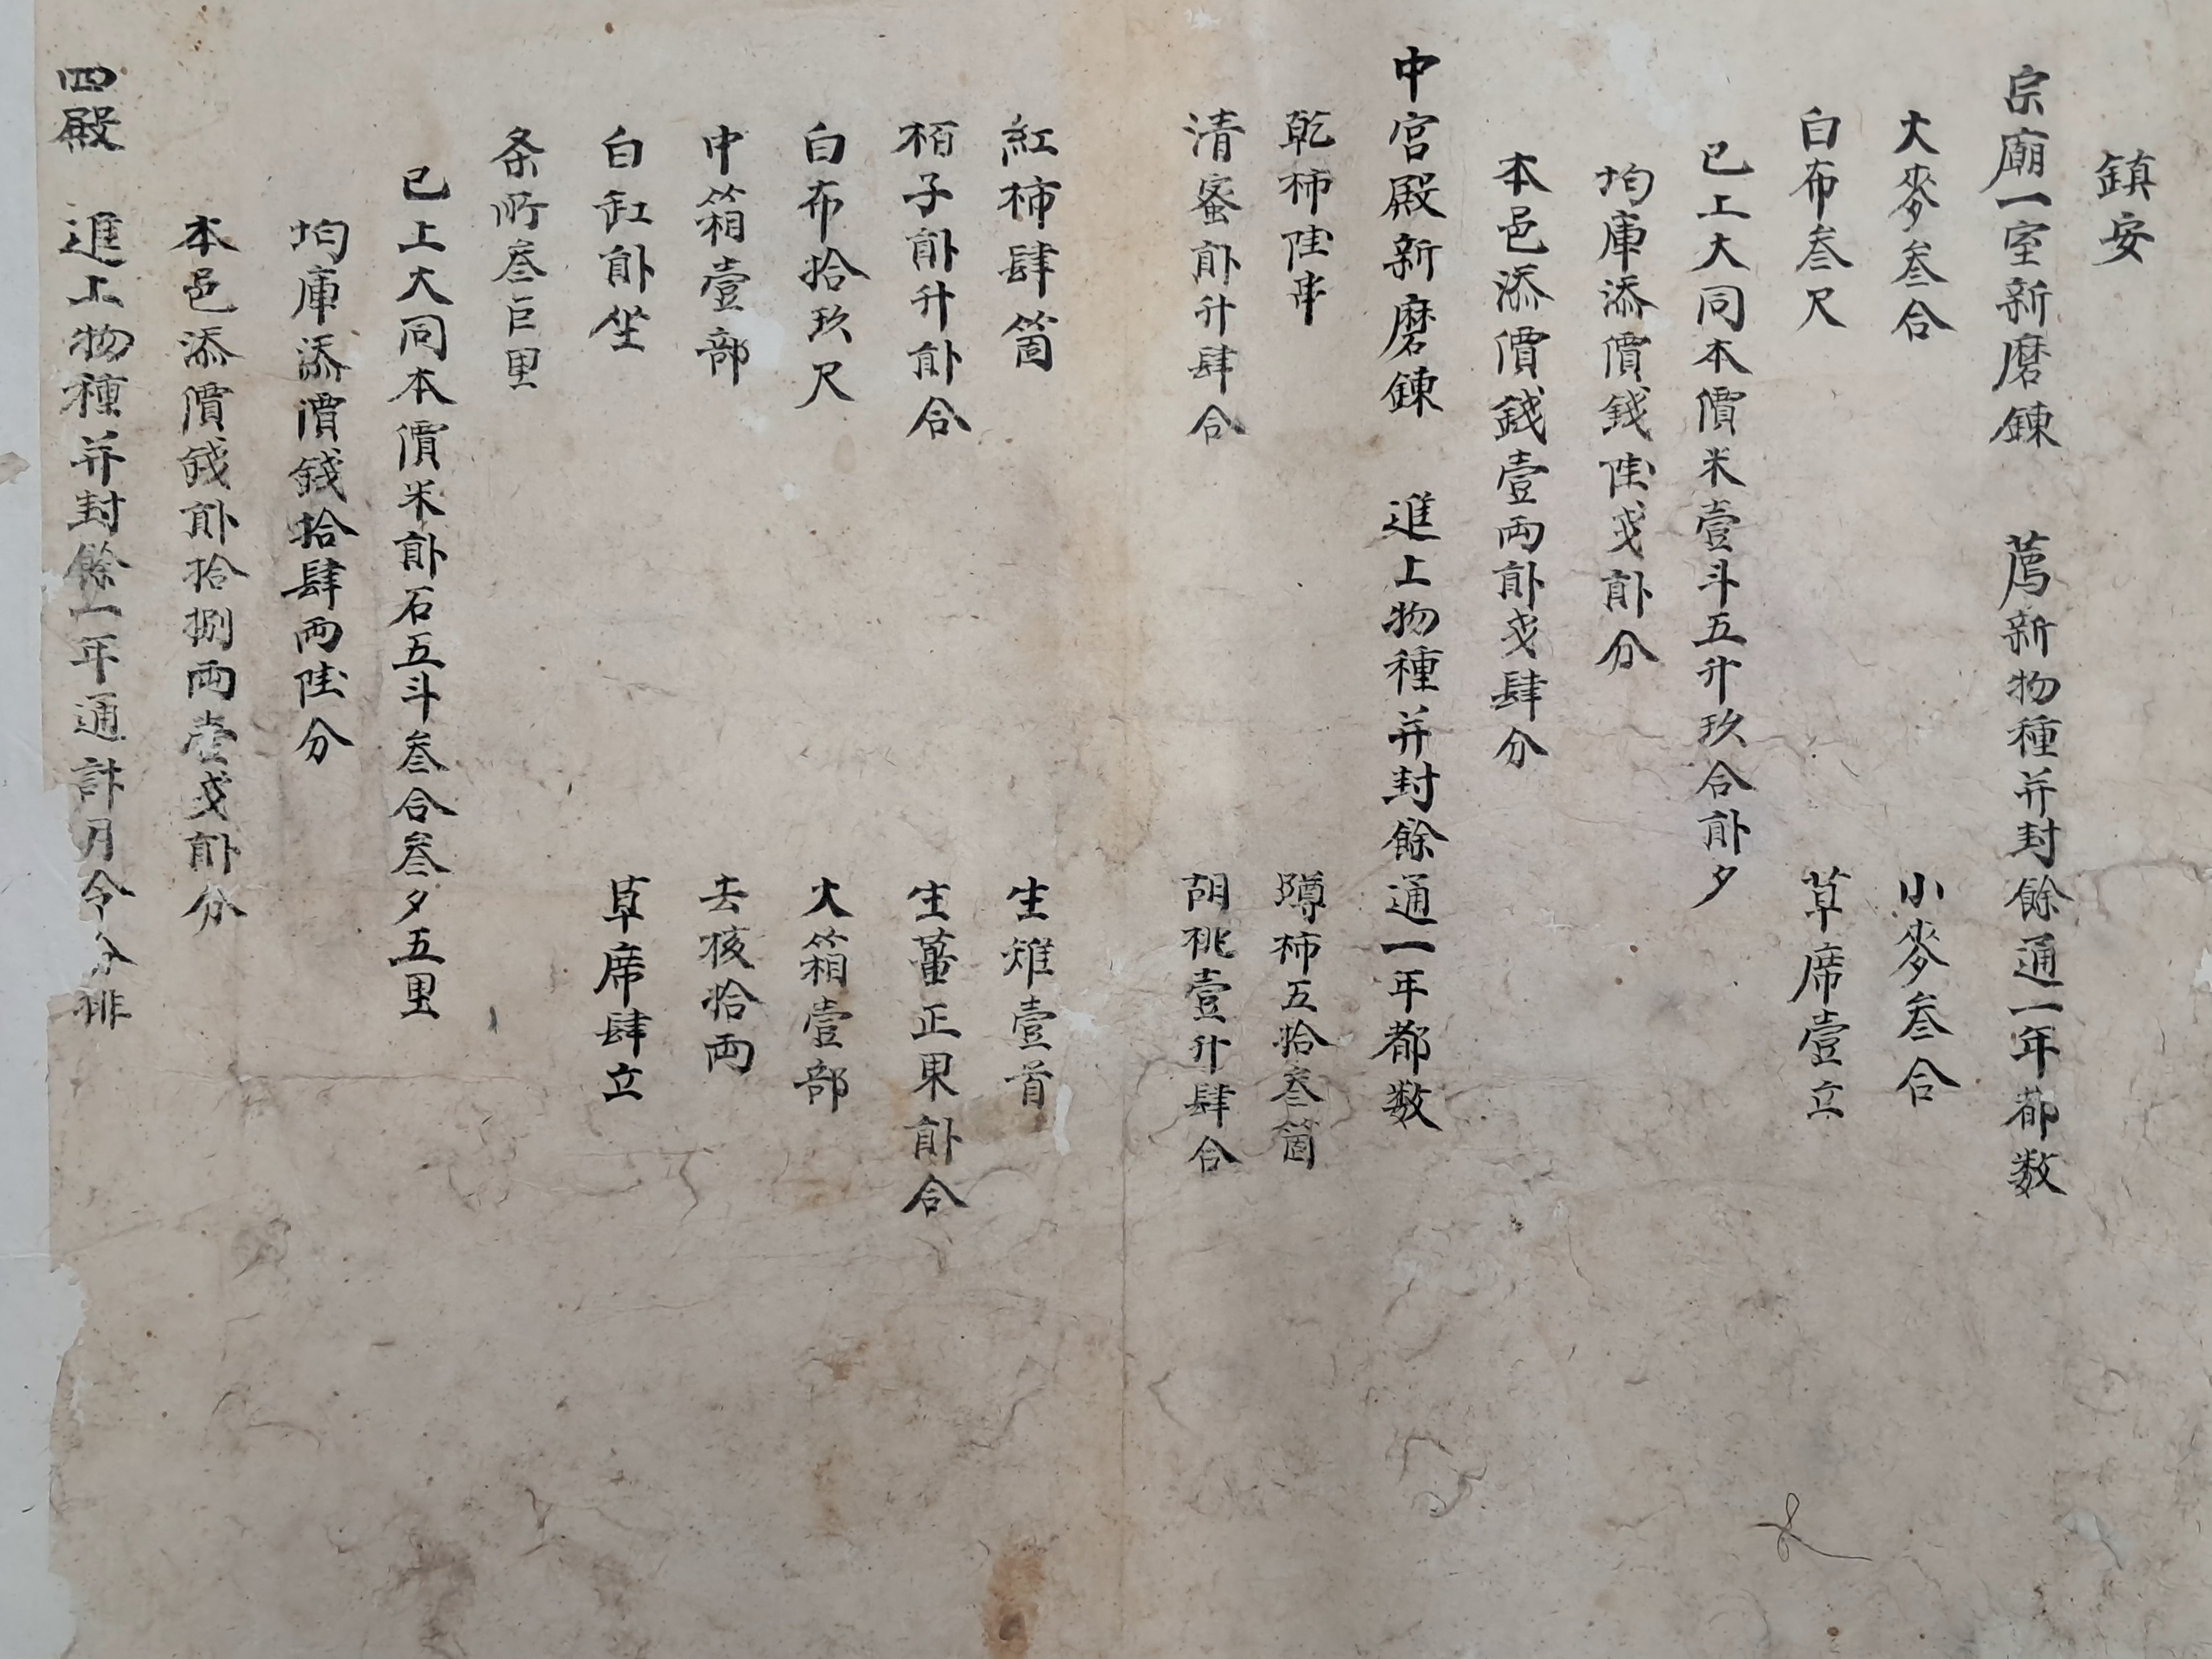 鎮安
宗廟一室新磨鍊 薦新物種并封餘通一年都数
大麥叁合 小麥叁合
白布叁尺 草席壹立
已上大同本價米壹斗五升玖合貳夕
均庫添價錢陸戔貳分
本邑添價錢壹兩貳戔肆分
中宮殿新磨鍊 進上物種并封餘通一年都数
乾柿陸串 蹲柿五拾叁箇
清蜜貳升肆合 胡桃壹升肆合
紅柿肆箇 生雉壹首
栢子貳升貳合 生薑正果貳合
白布拾玖尺 大箱壹部
中箱壹部 去核拾兩
白缸貳坐 草席肆立
条所叁巨里
已上大同本價米貳石五斗叁合叁夕五里
均庫添價錢拾肆兩陸分
本邑添價錢貳拾捌兩壹戔貳分
四殿 進上物種并封餘一年通計月令分排